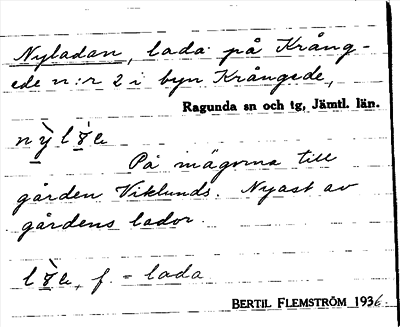 Nyladan, lada på Krång-
ede n:r 2 i byn Krångede,
Ragunda sn och tg, Jämtl. län.
På mägorna till
gården Viklunds. Nyast av
gårdens lador.
f. = lada
BERTIL FLEMSTRÖM 1936.